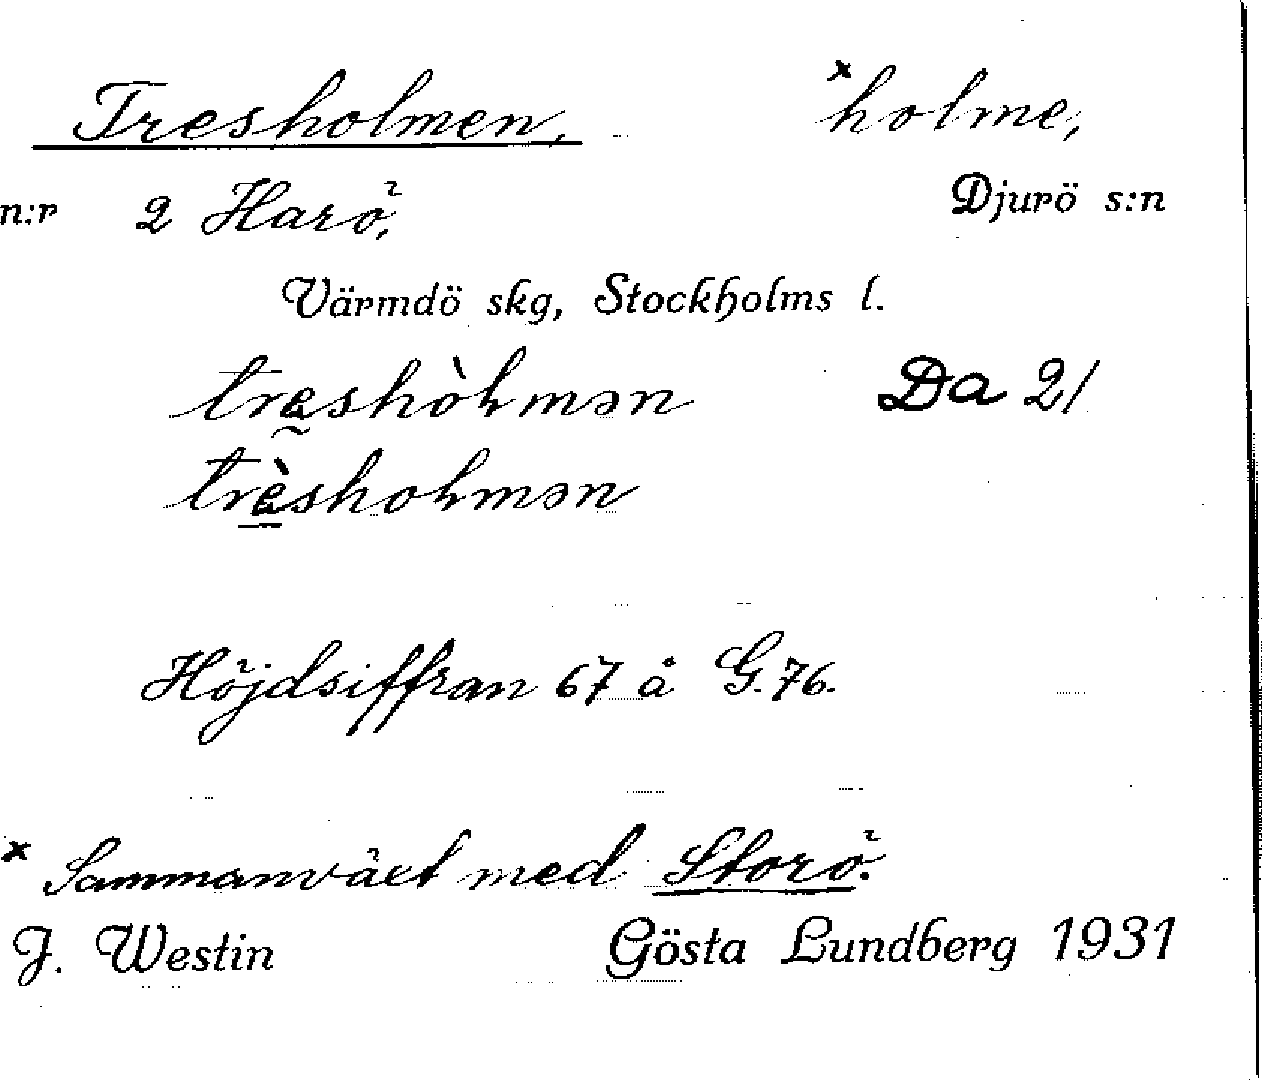 Tresholmen, ×holme,
n:r 2 Harö, Djurö s:n
Värmdö skg, Stockholms l.
treshòlmən Da 21
trèsholmən
Höjdsiffran 67 å G. 76.
× Sammanväxt med Storö.
J. Westin Gösta Lundberg 1931